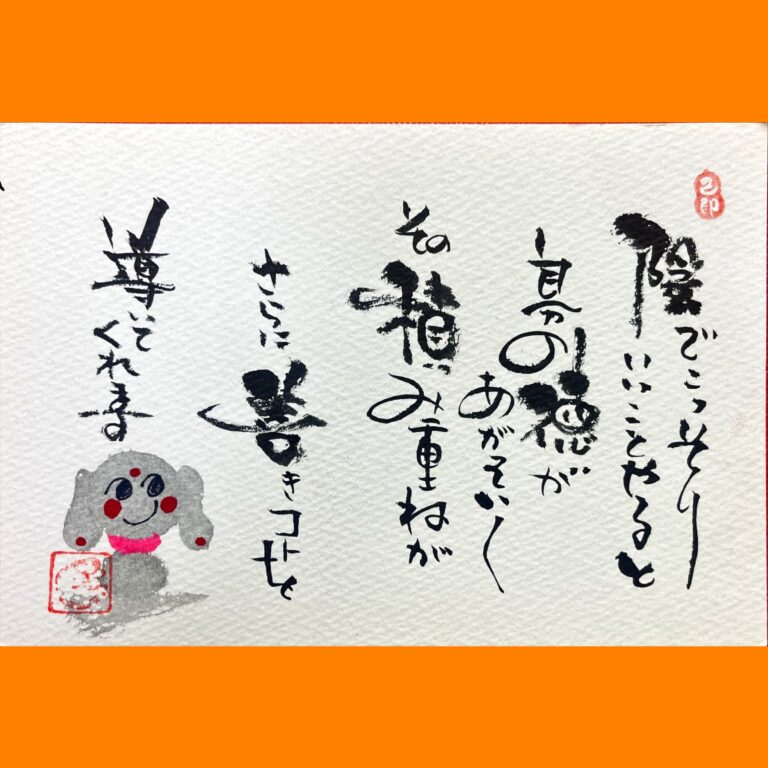 陰でこっそり
いいことやると
自分の徳が
あがっていく
その積み重ねが
さらに善きコトへと
導いて
くれます